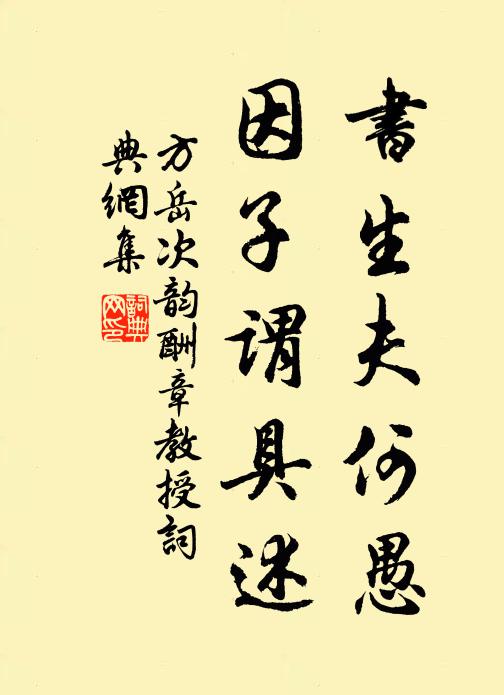 書生夫何愚
因子謂具述
方岳次韵酬章教授詞
典網集
詞典
网印